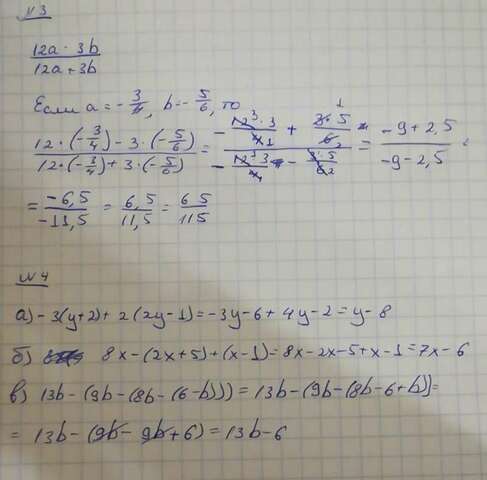 №3
12a · 3b
12a + 3b
Если a = -3/4, b = -5/6, то
12·(-3/4) - 3·(-5/6) / 12·(-3/4) + 3·(-5/6) = -12³·3/4₁ + 3¹·5/6₂ / -12³·3/4₁ - 3·5/6₂ = -9+2,5 / -9-2,5 =
= -6,5/-11,5 = 6,5/11,5 = 65/115
№4
а) -3(y+2) + 2(2y-1) = -3y-6+4y-2 = y-8
б) 8x-(2x+5)+(x-1) = 8x-2x-5+x-1 = 7x-6
в) 13b-(9b-(8b-(6-b))) = 13b-(9b-(8b-6+b)) =
= 13b-(9b-9b+6) = 13b-6